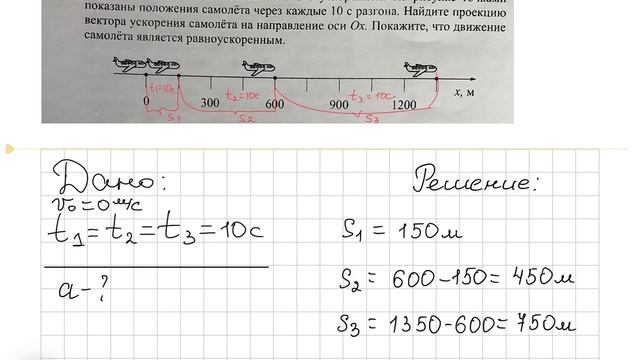 показаны положения самолёта через каждые 10 с разгона. Найдите проекцию
вектора ускорения самолёта на направление оси Ox. Покажите, что движение
самолёта является равноускоренным.
t₁=10с t₂=10с t₃=10с
0 300 600 900 1200 x, м
S₁ S₂ S₃
Дано: Решение:
v₀=0м/с
t₁=t₂=t₃=10с S₁ = 150м
a-? S₂ = 600-150=450м
S₃ = 1350-600=750м